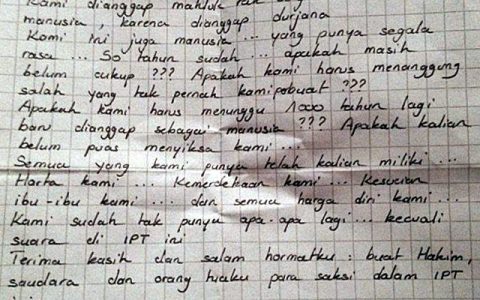 Kami dianggap mahluk tak
manusia, karena dianggap durjana
Kami ini juga manusia ... yang punya segala
rasa ... 50 tahun sudah ... apakah masih
belum cukup ??? Apakah kami harus menanggung
salah yang tak pernah kami perbuat ???
Apakah kami harus menunggu 1000 tahun lagi
baru dianggap sebagai manusia ??? Apakah kalian
belum puas menyiksa kami ...
Semua yang kami punya telah kalian miliki ...
Harta kami ... Kemerdekaan kami ... Kesucian
ibu-ibu kami ... dan semua harga diri kami ...
Kami sudah tak punya apa-apa lagi ... kecuali
suara di IPT ini
Terima kasih dan salam hormatku : buat Hakim,
saudara dan orang tuaku para saksi dalam IPT